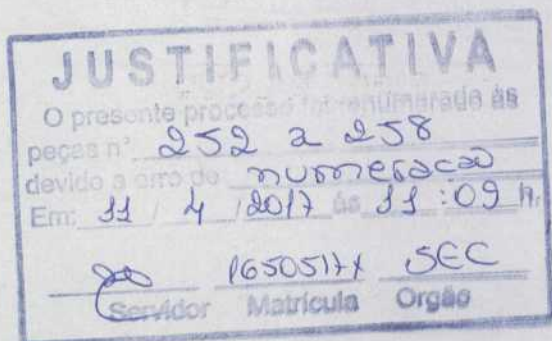 JUSTIFICATIVA
O presente processo foi renumerado às
peças nº 252 a 258
devido a erro de numeração
Em: 11 / 4 / 2017 às 11:09 h.
SEC
Servidor Matrícula Orgão